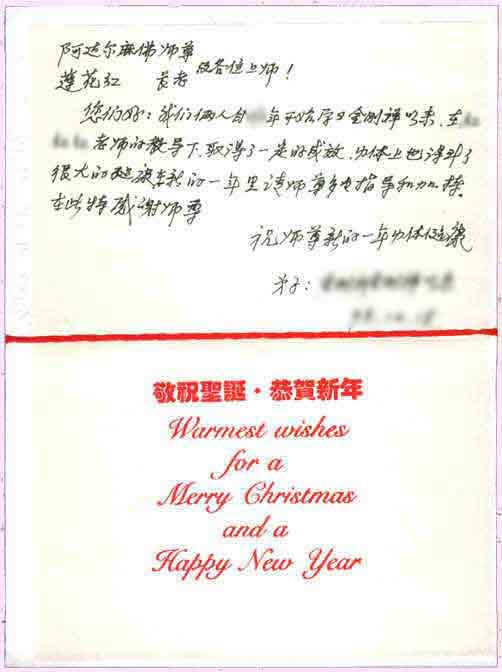 阿达尔麻佛师尊
蓮花红 長老 及各位上师！
您们好：我们俩人自 年开始学习金刚禅以来，在
老师的教导下，取得了一定的成效，身体上也得到了
很大的 在新的一年里请师尊多多指导和加持
在此特感谢师尊
祝师尊新的一年身体健康
弟子：
敬祝聖誕・恭賀新年
Warmest wishes
for a
Merry Christmas
and a
Happy New Year